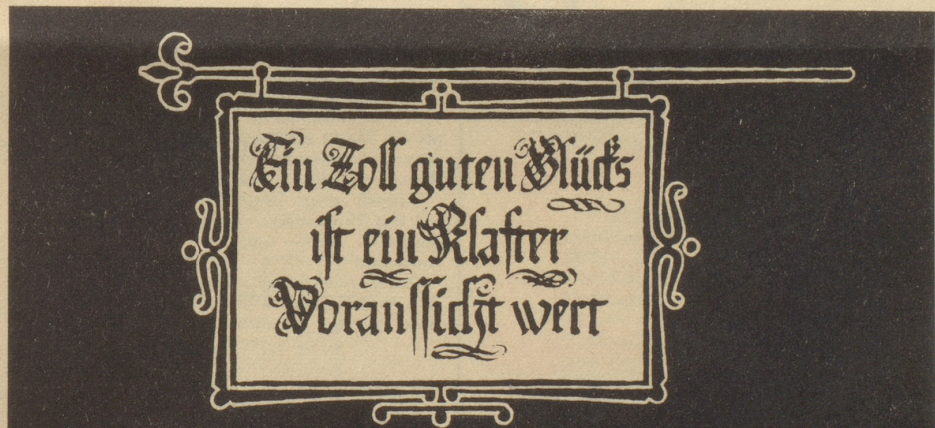 Ein Zoll guten Glücks
ist ein Klafter
Voraussicht wert